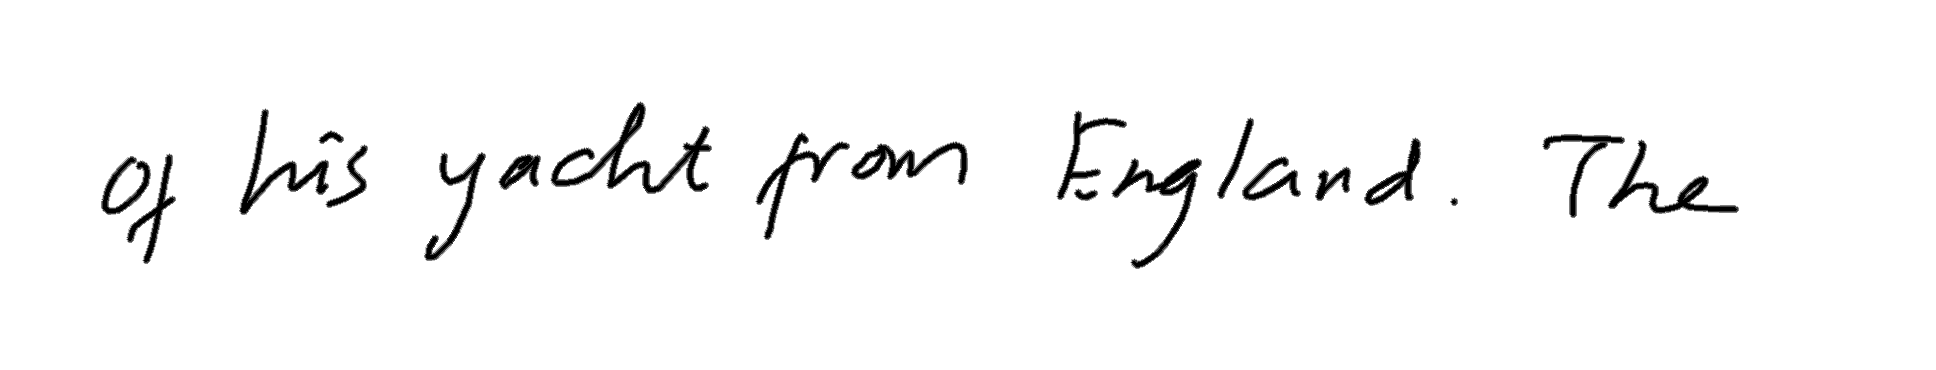 of his yacht from England. The